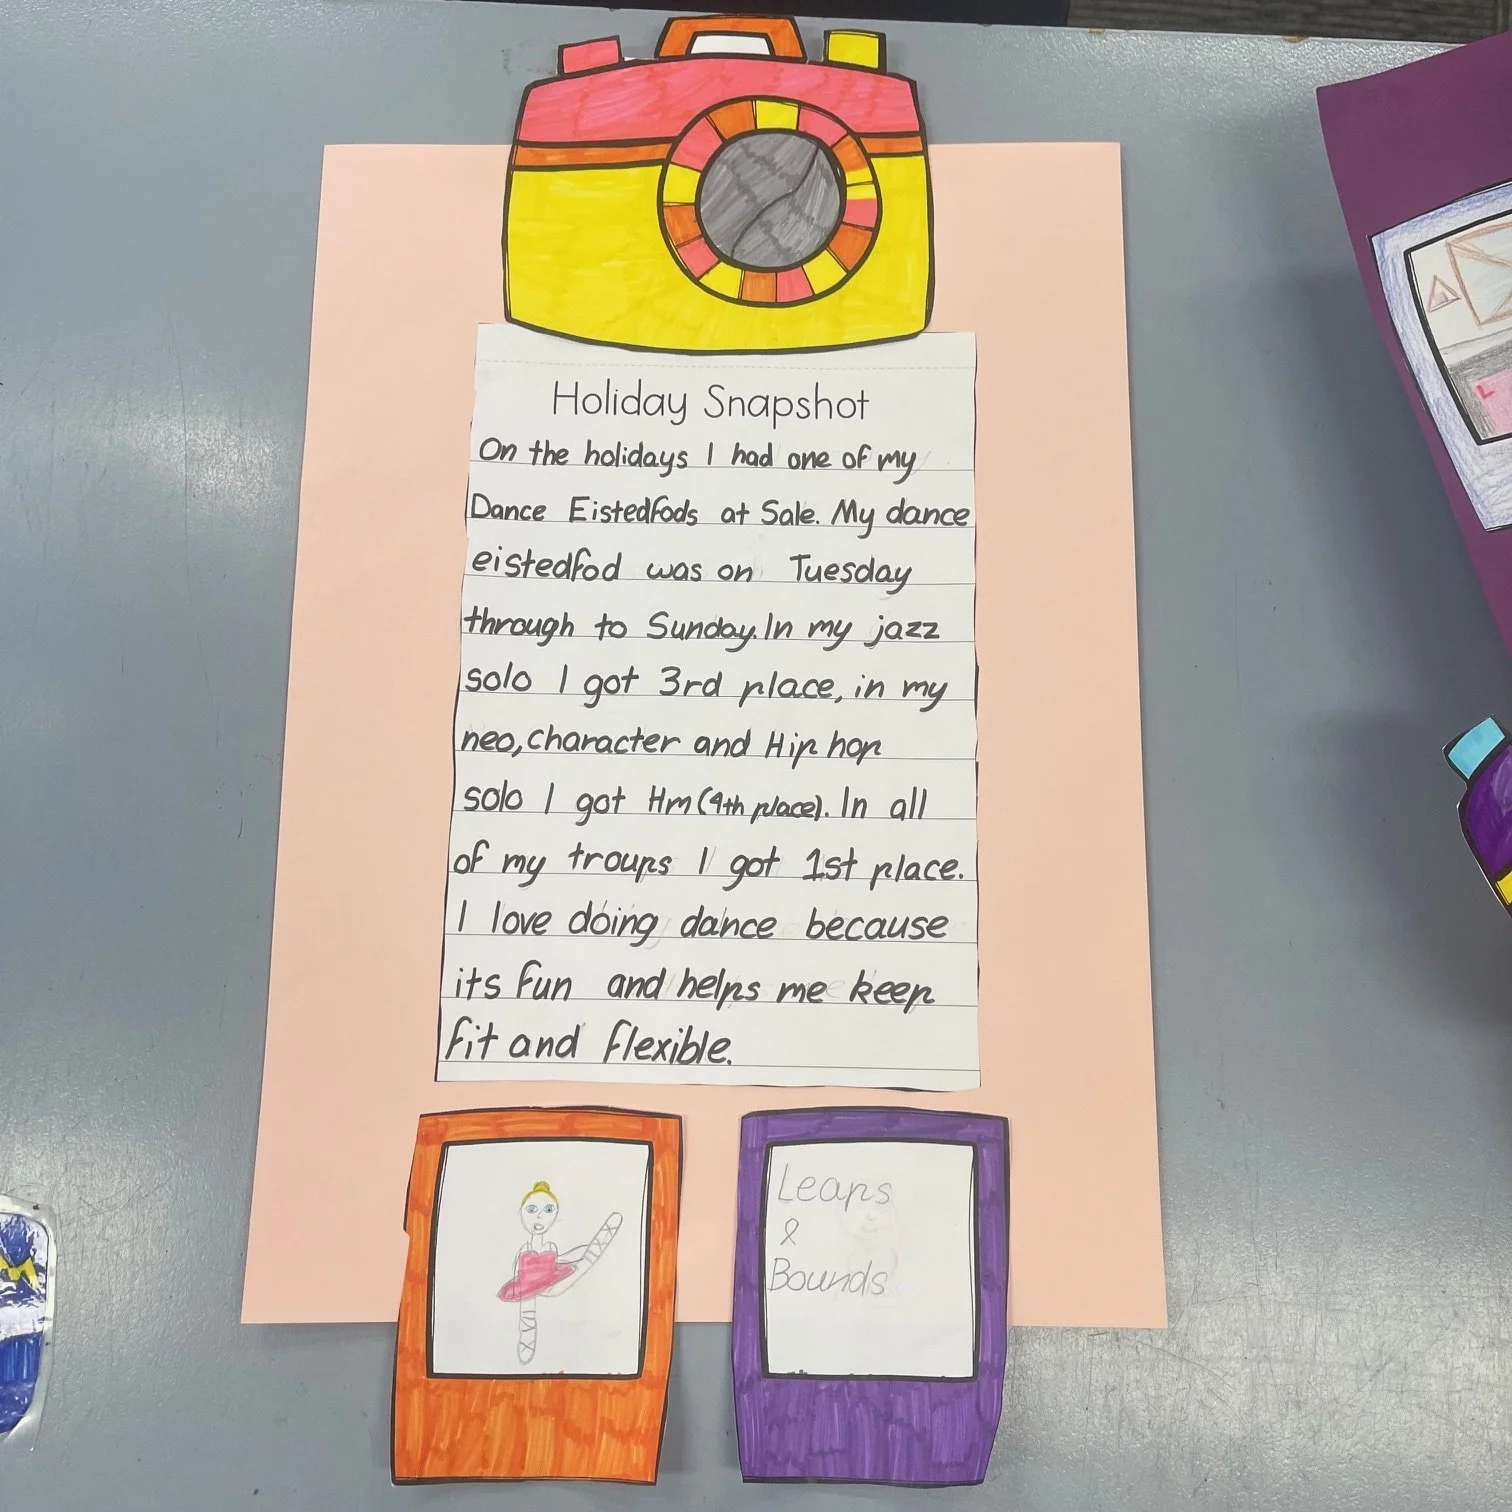 Holiday Snapshot
On the holidays I had one of my
Dance Eistedfods at Sale. My dance
eistedfod was on Tuesday
through to Sunday. In my jazz
solo I got 3rd place, in my
neo, character and Hip hop
solo I got Hm (4th place). In all
of my troups I got 1st place.
I love doing dance because
its fun and helps me keep
fit and flexible.
Leaps
&
Bounds